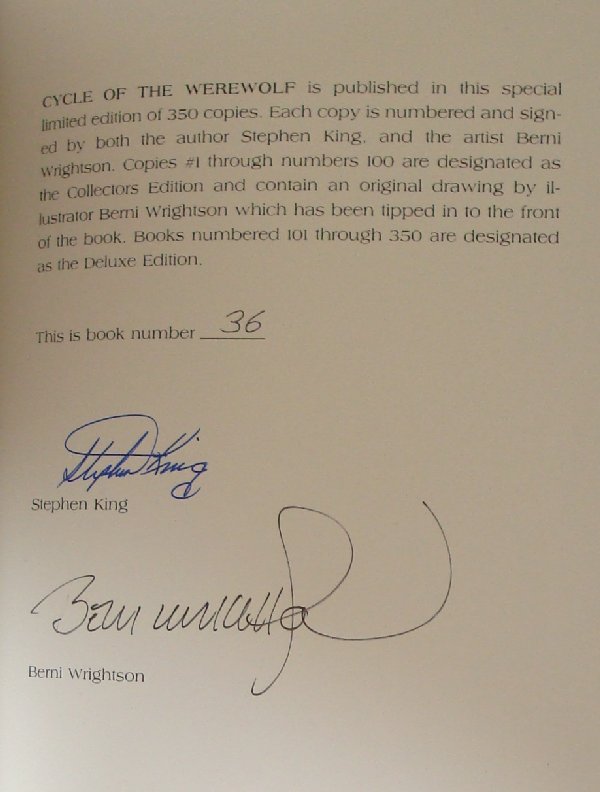 CYCLE OF THE WEREWOLF is published in this special
limited edition of 350 copies. Each copy is numbered and sign-
ed by both the author Stephen King, and the artist Berni
Wrightson. Copies #1 through numbers 100 are designated as
the Collectors Edition and contain an original drawing by il-
lustrator Berni Wrightson which has been tipped in to the front
of the book. Books numbered 101 through 350 are designated
as the Deluxe Edition.
This is book number 36
Stephen King
Stephen King
Berni Wrightson
Berni Wrightson